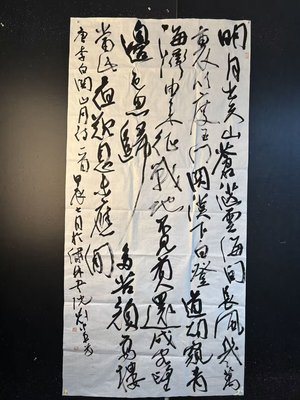 明月出天山蒼茫雲海間長風幾萬
里吹度玉門關漢下白登道胡窺青
海灣由來征戰地不見有人還戍客望
邊色思歸多苦顏高樓
當此夜歎息未應閒
唐李白關山月詩一首甲辰七月於